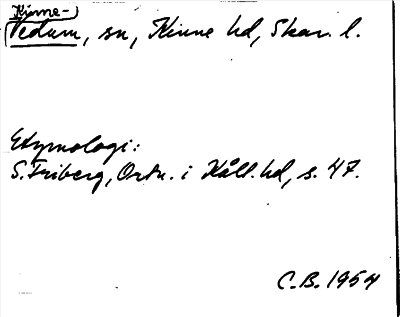 Kinne-)
Vedum, sn, Kinne hd, Skar. l.
Etymologi:
S. Friberg, Ortn. i Kåll. hd, s. 47.
C.B. 1954